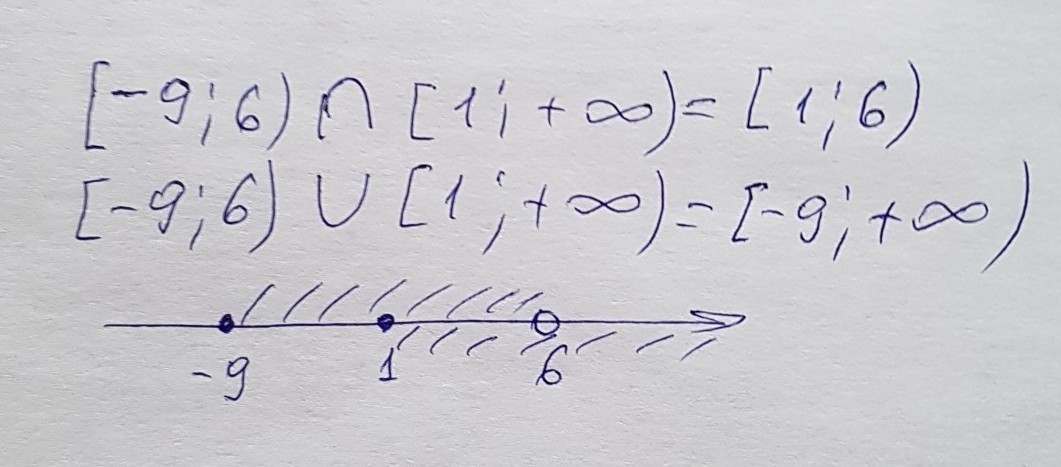 [-9; 6) ∩ [1; +∞) = [1; 6)
[-9; 6) ∪ [1; +∞) = [-9; +∞)
-9 1 6